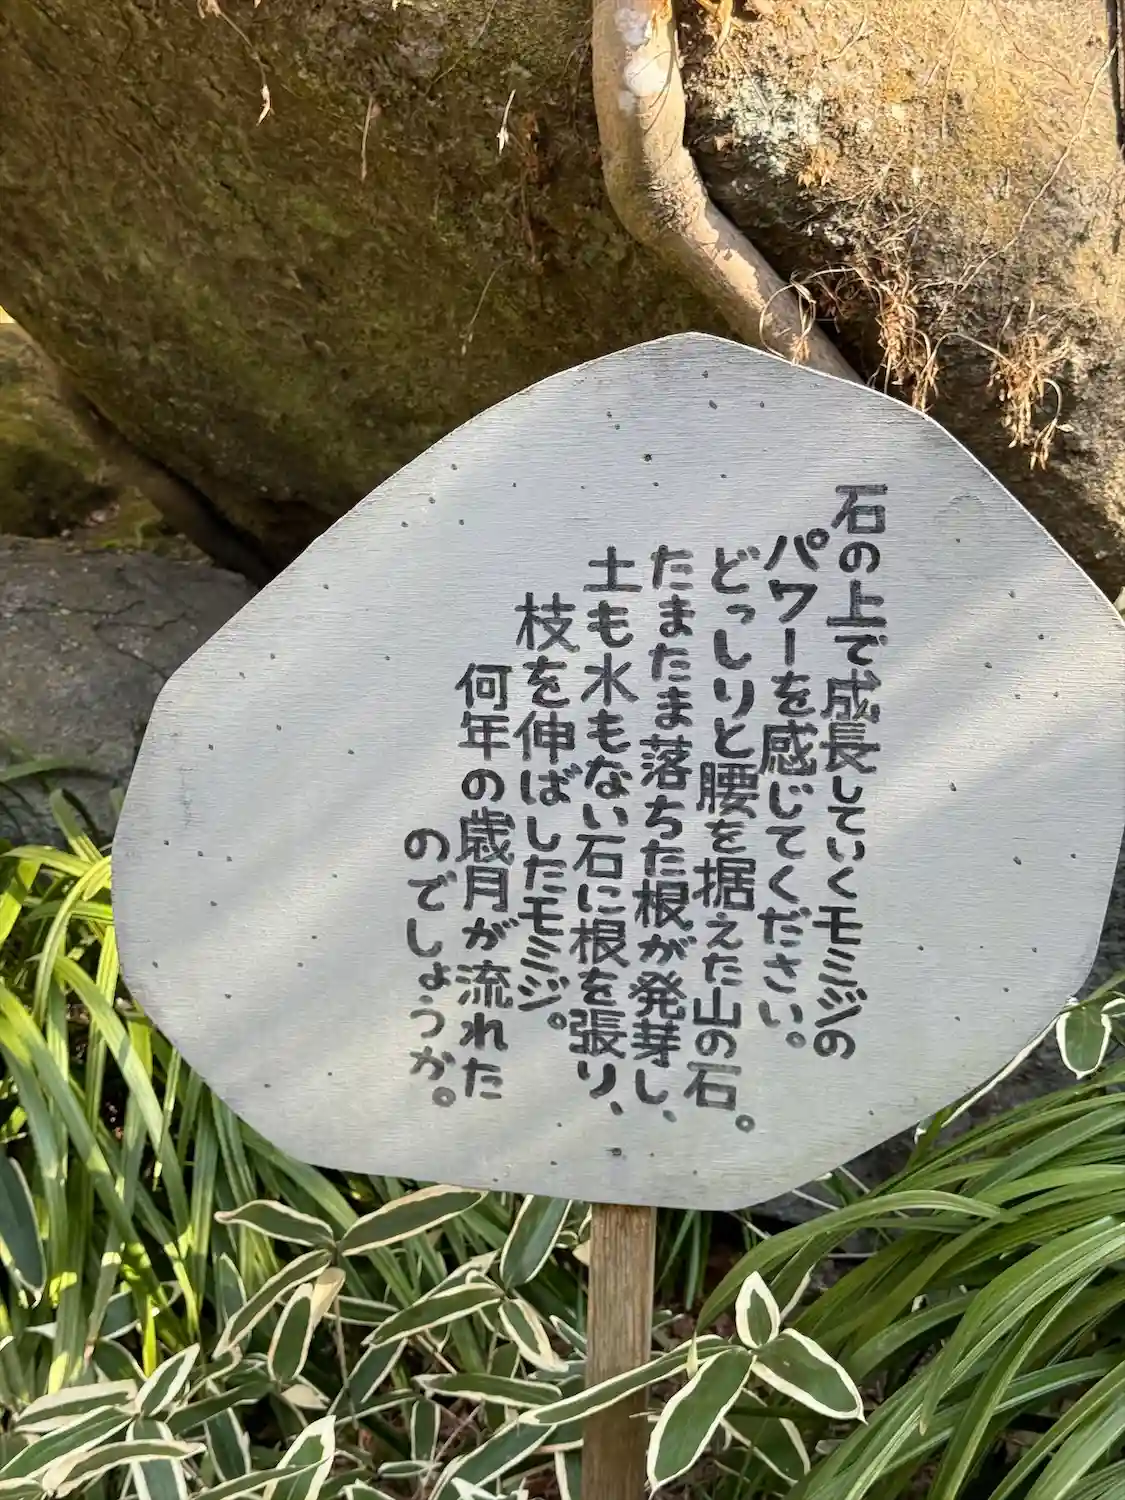 石の上で成長していくモミジの
パワーを感じてください。
どっしりと腰を据えた山の石。
たまたま落ちた根が発芽し、
土も水もない石に根を張り、
枝を伸ばしたモミジ。
何年の歳月が流れた
のでしょうか。